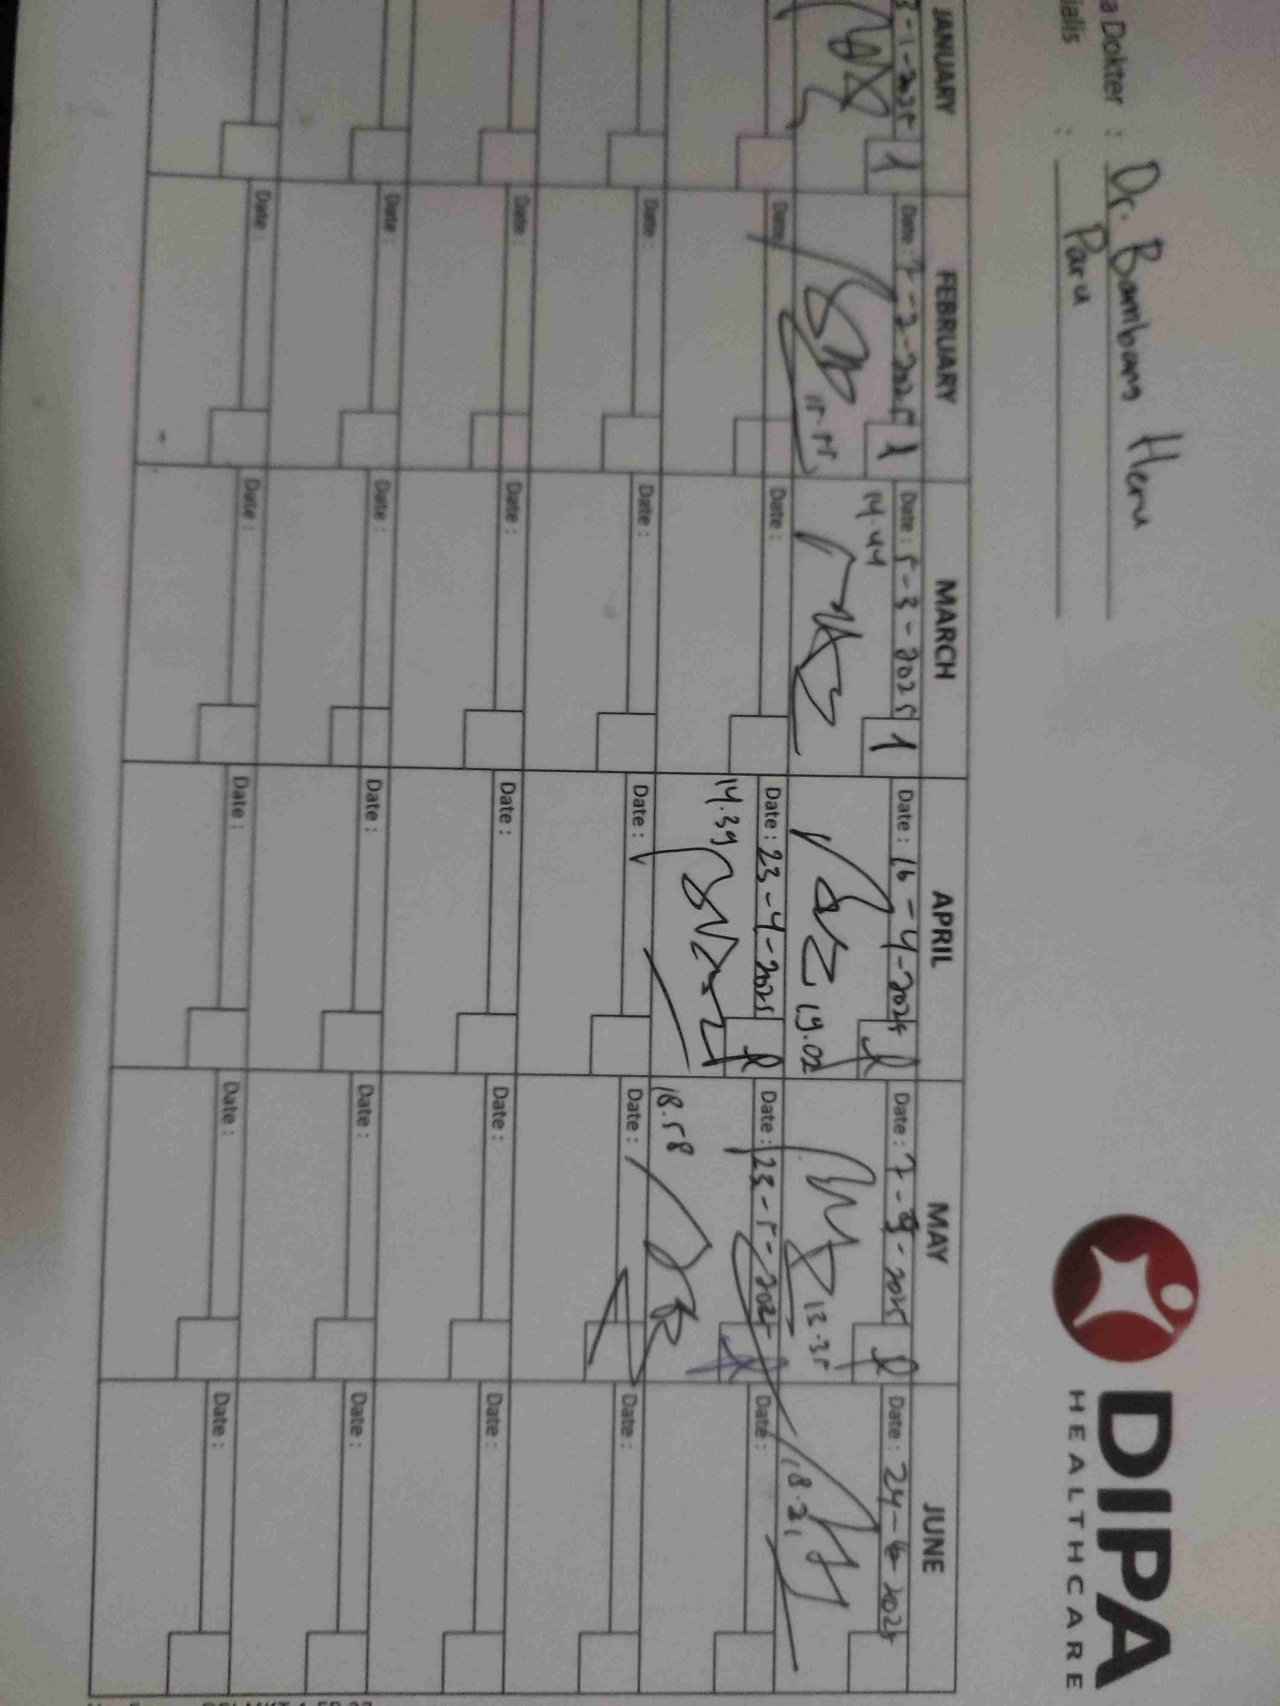 a Dokter : Dr. Bambang Heru
ialis : Paru
DIPA
HEALTHCARE
JANUARY FEBRUARY MARCH APRIL MAY JUNE
3-1-2025 1 Date : 7-2-2025 1 Date : 5-3-2025 1 Date : 16-4-2025 Date : 7-5-2025 Date : 24-6-2025
14.44
15.15 19.02 13.35 18.21
Date : Date : Date : 23-4-2025 Date : 23-5-2025 Date :
14.39 18.58
Date : Date : Date : Date : Date :
Date : Date : Date : Date : Date :
Date : Date : Date : Date : Date :
Date : Date : Date : Date : Date :